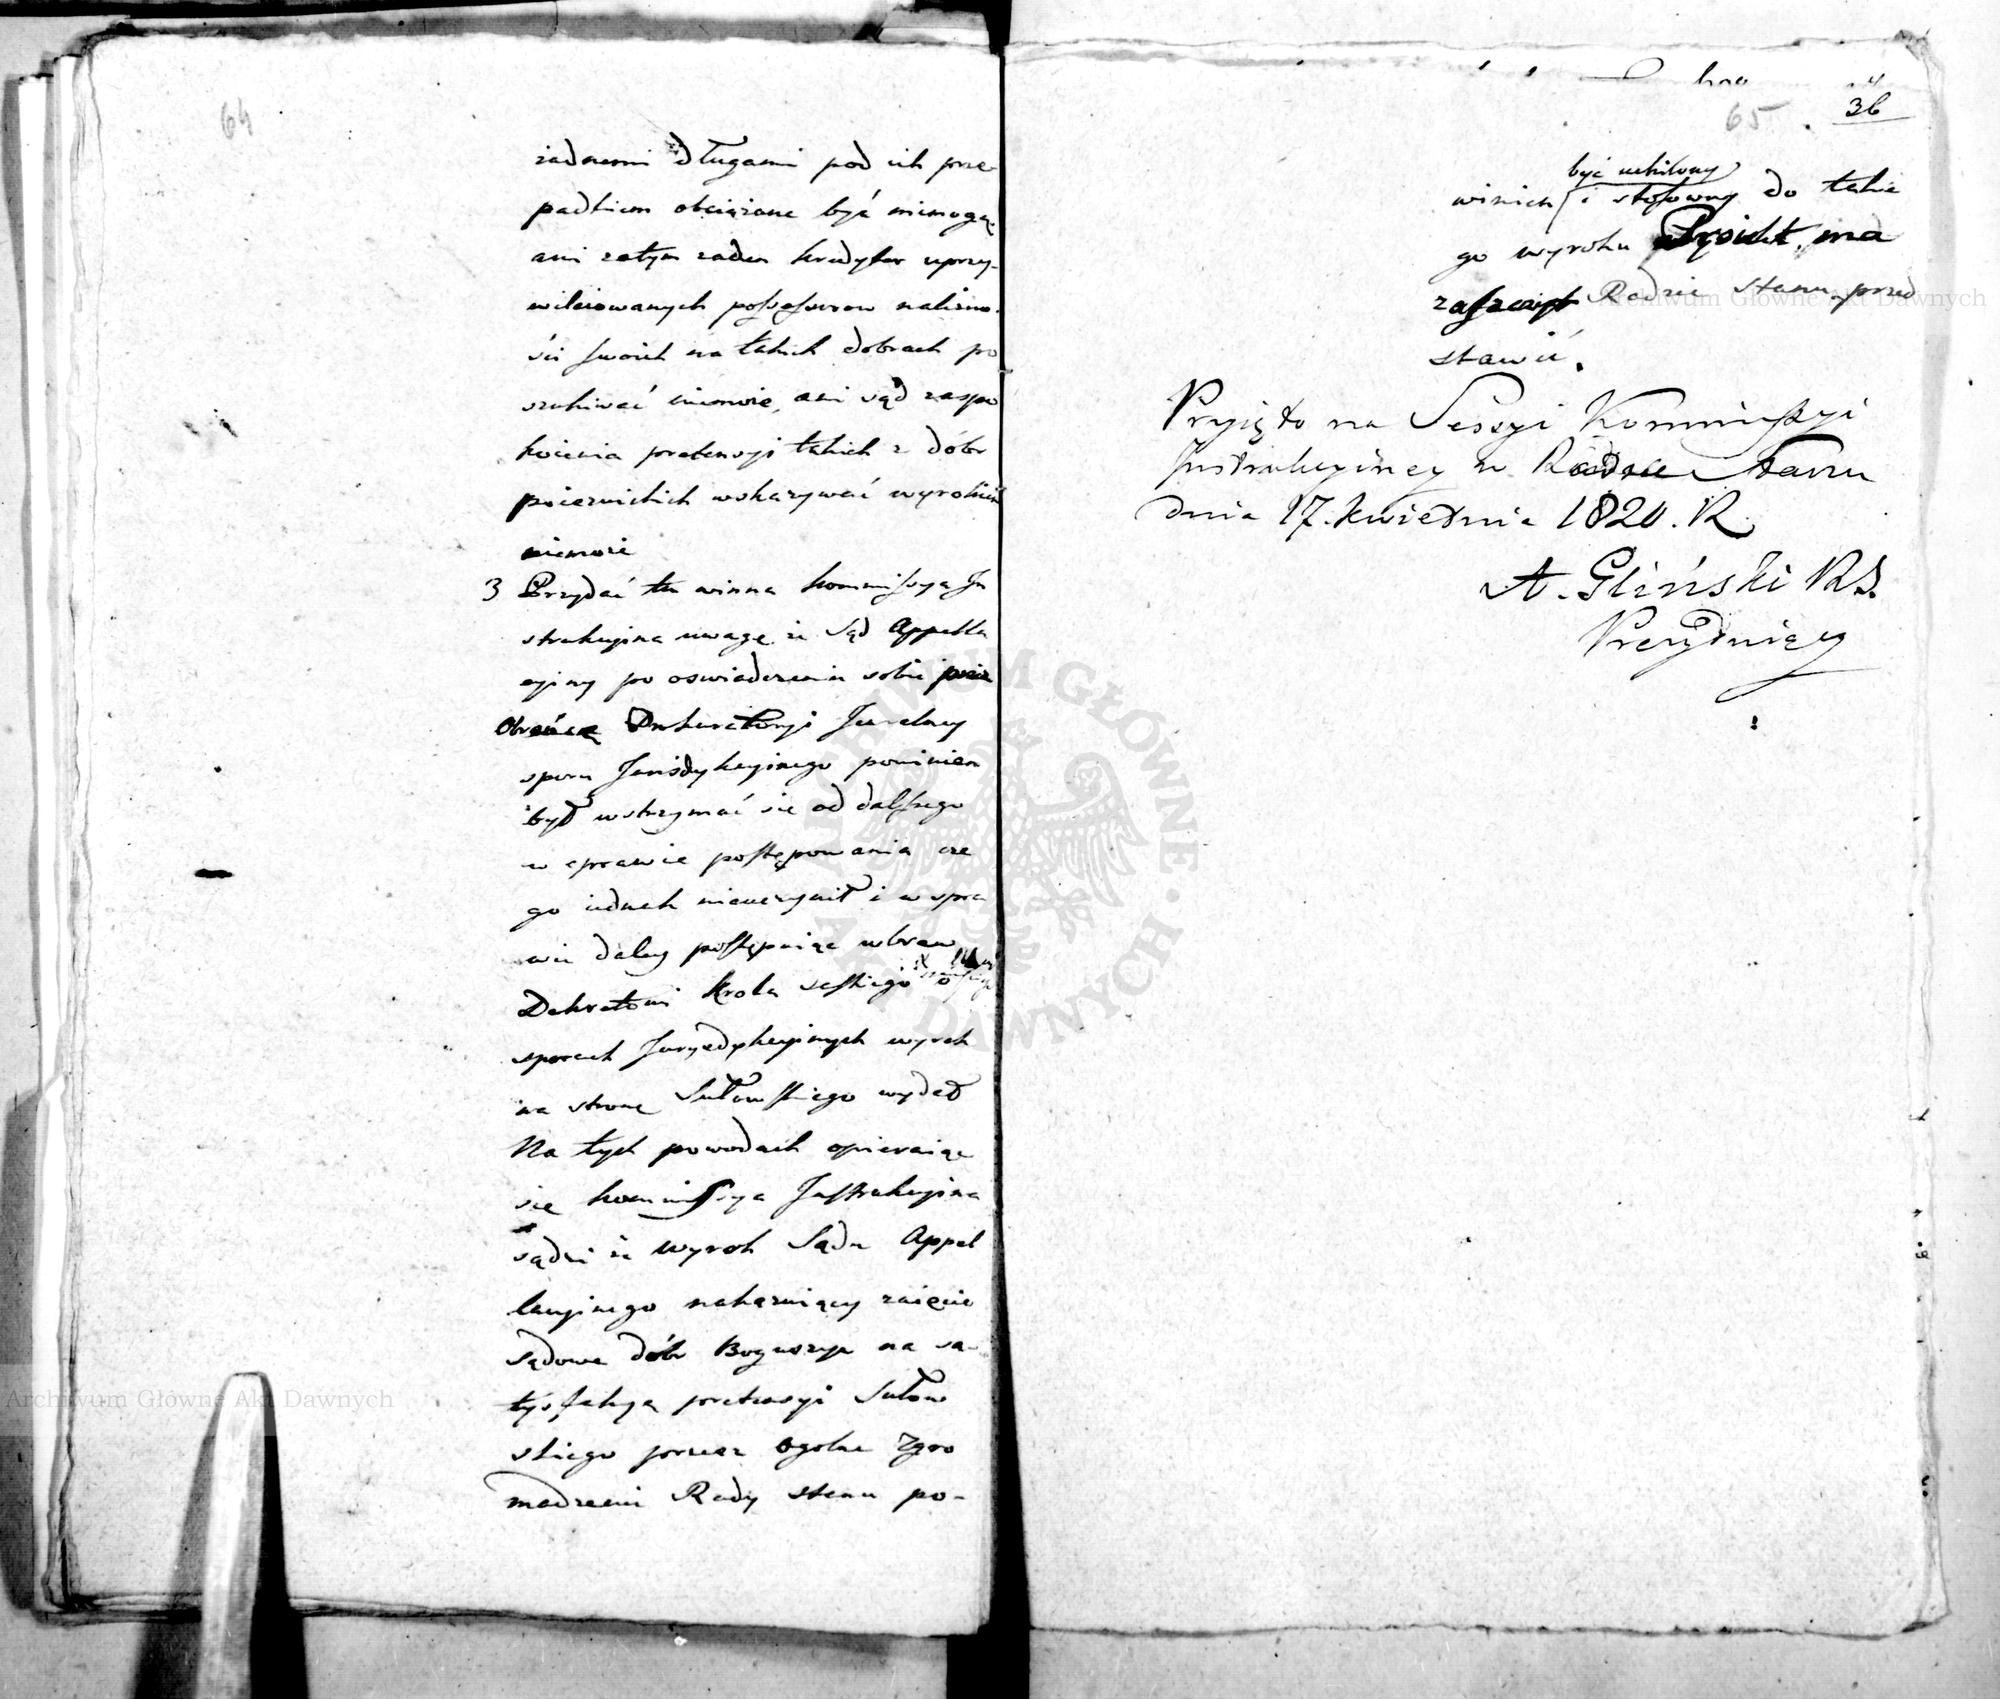 64
żadnemi długami pod ich prze-
padkiem obciążone być niemogą,
ani zatym żaden kredytor uprzy-
wileiowanych possessorow należno-
ści swoich na takich dobrach po
szukiwać niemoże, ani sąd zaspo
koienia pretensyi takich z dóbr
poiezuickich wskazywać wyrokiem
niemoże
3 Przydać tu winna Kommissya In
strukcyina uwagę że Sąd Appella
cyiny po oswiadczeniu sobie przez
Obrońcę Prokuratoryi Jeneralney
sporu Jurisdykcyinego powinien
był wstrzymać się od dalszego
w sprawie postępowania cze
go iednak nieuczynił i w spra
wie daley postępuiąc wbrew
Dekretowi Krola Saskiego o
sporach Juryzdykcyinych wyrok
na stronę Sułowskiego wydał
Na tych powodach opieraiąc
się Kommissya Instrukcyina
sądzi że wyrok Sądu Appel
lacyinego nakazuiący zaięcie
sądowe dóbr Boguszyn na sa-
tysfakcyą pretensyi Sułow
skiego przez ogolne Zgro
madzenie Rady Stanu po-
65
36
być uchilony
winien i stosowny do takie
go wyroku Proiekt ma
zaszczyt Radzie Stanu przed
stawić.
Przyięto na Sessyi Kommissyi
Instrukcyiney w Radzie Stanu
dnia 17. Kwietnia 1820. R
A. Gliński R.S.
Prezyduiący
Archiwum Główne Akt Dawnych
Archiwum Główne Akt Dawnych
ARCHIWUM GŁÓWNE AKT DAWNYCH